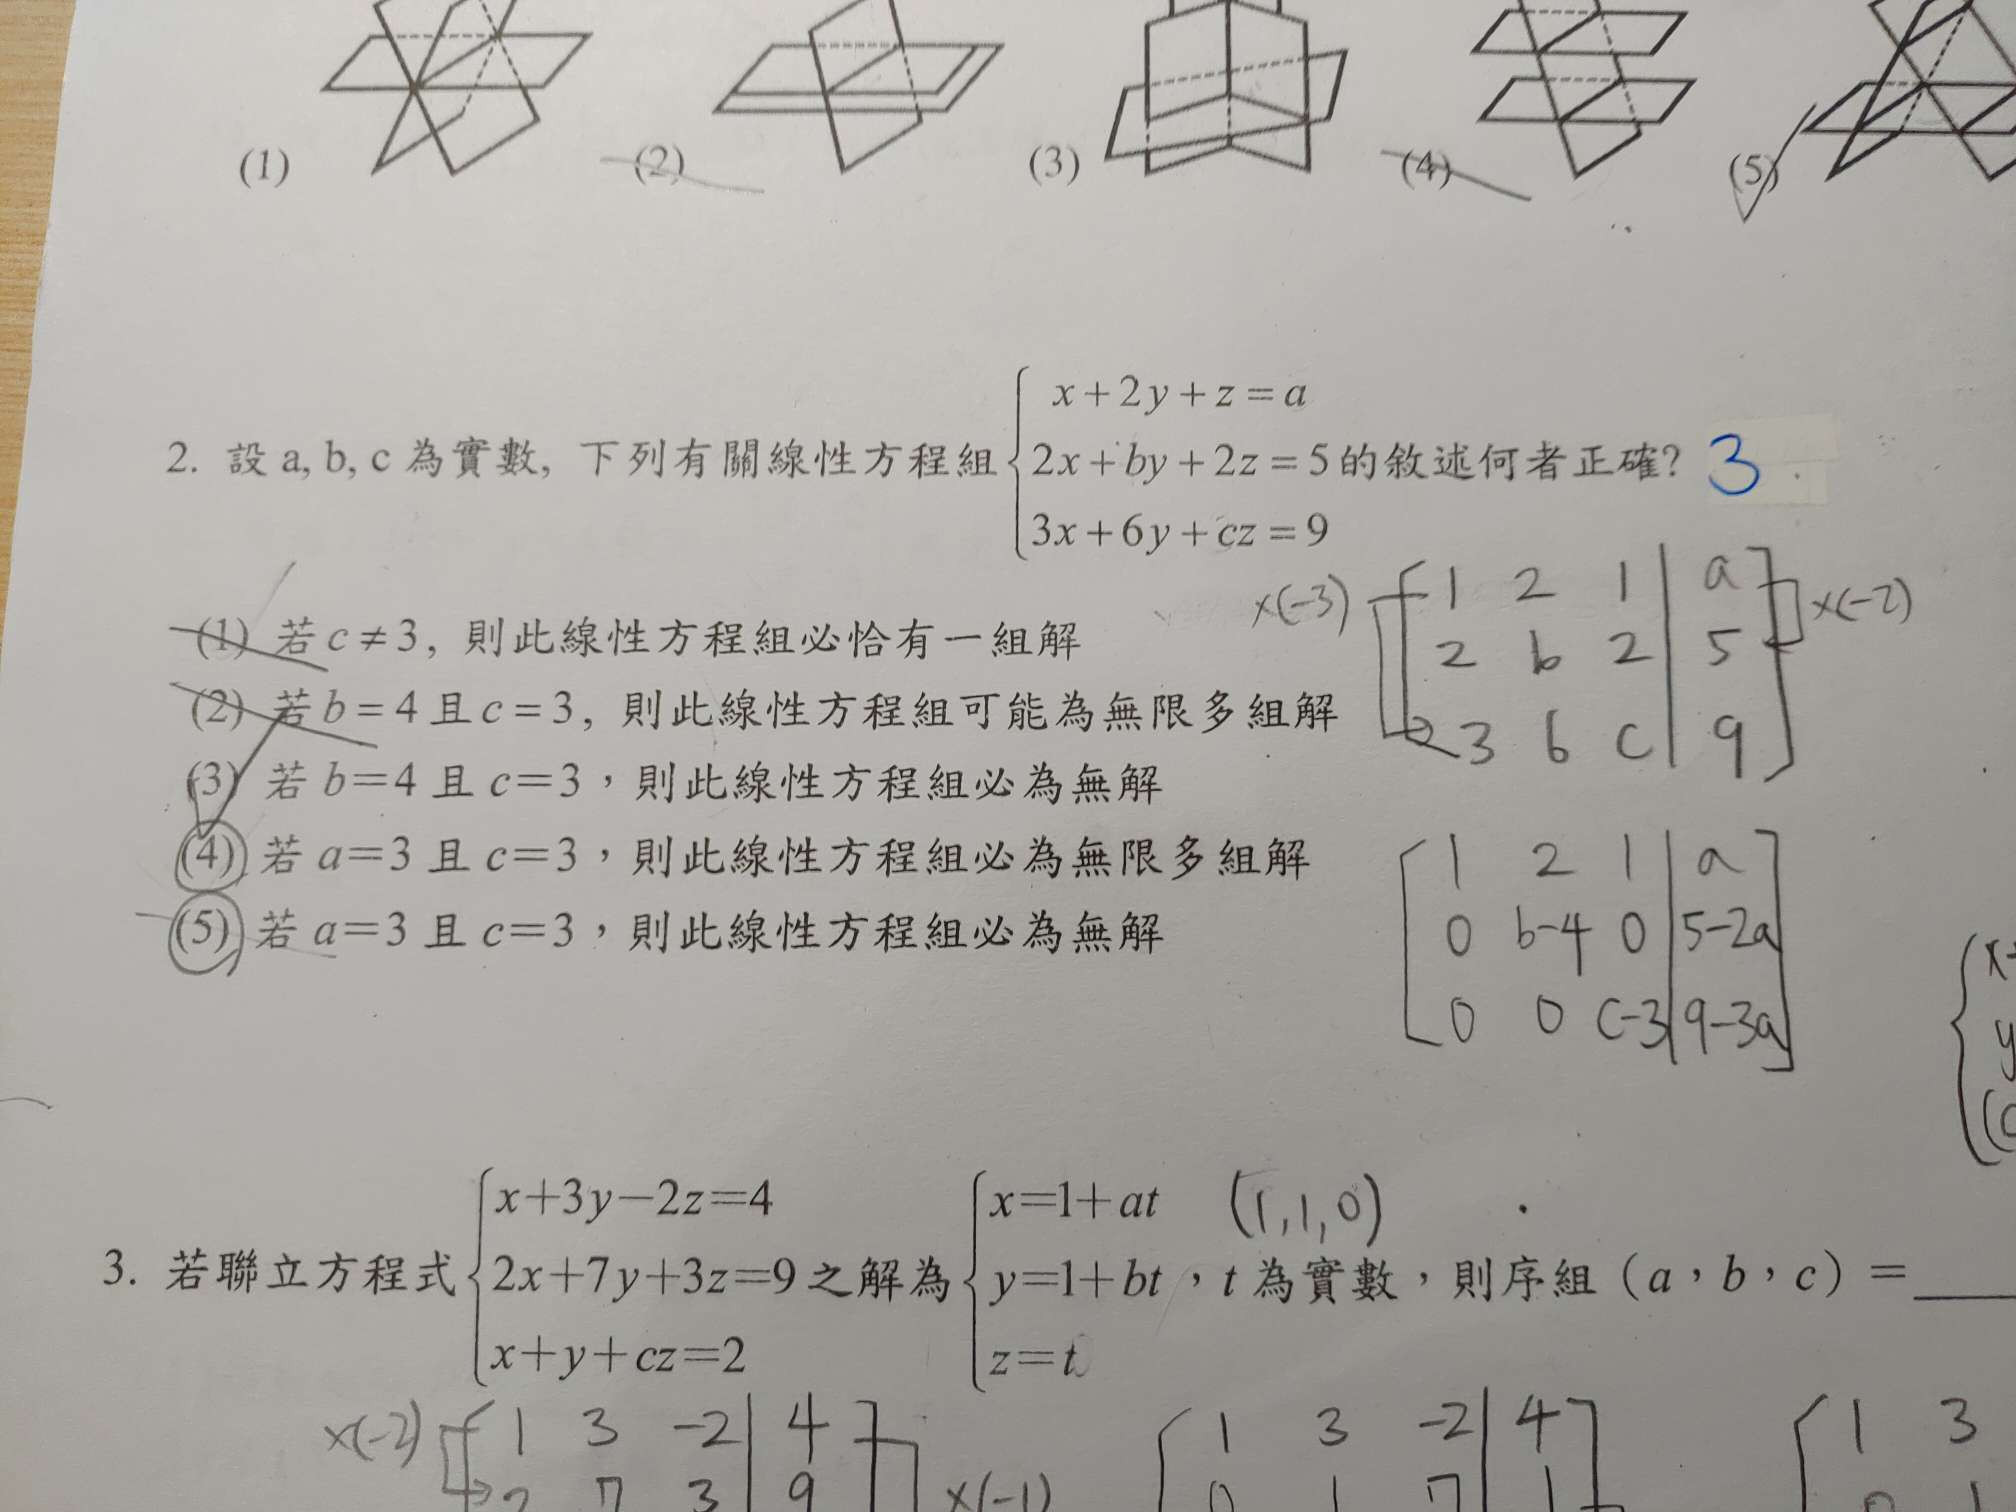 (1) (2) (3) (4) (5)
2. 設 a, b, c 為實數, 下列有關線性方程組 { x+2y+z=a
2x+by+2z=5 的敘述何者正確? 3
3x+6y+cz=9
(1) 若 c≠3, 則此線性方程組必恰有一組解
(2) 若 b=4 且 c=3, 則此線性方程組可能為無限多組解
(3) 若 b=4 且 c=3，則此線性方程組必為無解
(4) 若 a=3 且 c=3，則此線性方程組必為無限多組解
(5) 若 a=3 且 c=3，則此線性方程組必為無解
x(-3) [ 1 2 1 | a ] x(-2)
2 b 2 | 5
3 6 c | 9
[ 1 2 1 | a ]
0 b-4 0 | 5-2a
0 0 c-3 | 9-3a
3. 若聯立方程式 { x+3y−2z=4
2x+7y+3z=9
x+y+cz=2
之解為 { x=1+at (1,1,0)
y=1+bt，t 為實數，則序組（a，b，c）=
z=t
x(-2) [ 1 3 -2 | 4 ]
2 7 3 | 9 x(-1)
[ 1 3 -2 | 4 ]
0 1 7 | 1
[ 1 3
0 1